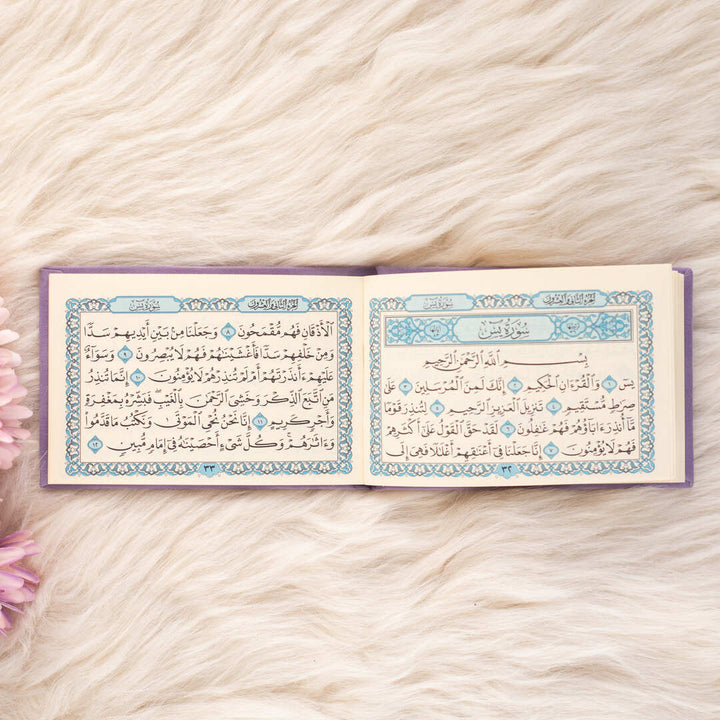 الجزء الثاني والعشرون
سورة يس
سورة يس
بِسْمِ اللَّهِ الرَّحْمَٰنِ الرَّحِيمِ
يسٓ ١ وَالْقُرْءَانِ الْحَكِيمِ ٢ إِنَّكَ لَمِنَ الْمُرْسَلِينَ ٣ عَلَىٰ
صِرَاطٍ مُّسْتَقِيمٍ ٤ تَنزِيلَ الْعَزِيزِ الرَّحِيمِ ٥ لِتُنذِرَ قَوْمًا
مَّا أُنذِرَ ءَابَاؤُهُمْ فَهُمْ غَافِلُونَ ٦ لَقَدْ حَقَّ الْقَوْلُ عَلَىٰ أَكْثَرِهِمْ
فَهُمْ لَا يُؤْمِنُونَ ٧ إِنَّا جَعَلْنَا فِي أَعْنَاقِهِمْ أَغْلَالًا فَهِيَ إِلَى
٣٢
الجزء الثاني والعشرون
سورة يس
الْأَذْقَانِ فَهُم مُّقْمَحُونَ ٨ وَجَعَلْنَا مِن بَيْنِ أَيْدِيهِمْ سَدًّا
وَمِنْ خَلْفِهِمْ سَدًّا فَأَغْشَيْنَاهُمْ فَهُمْ لَا يُبْصِرُونَ ٩ وَسَوَاءٌ
عَلَيْهِمْ ءَأَنذَرْتَهُمْ أَمْ لَمْ تُنذِرْهُمْ لَا يُؤْمِنُونَ ١٠ إِنَّمَا تُنذِرُ
مَنِ اتَّبَعَ الذِّكْرَ وَخَشِيَ الرَّحْمَٰنَ بِالْغَيْبِ فَبَشِّرْهُ بِمَغْفِرَةٍ
وَأَجْرٍ كَرِيمٍ ١١ إِنَّا نَحْنُ نُحْيِ الْمَوْتَىٰ وَنَكْتُبُ مَا قَدَّمُوا
وَءَاثَارَهُمْ وَكُلَّ شَيْءٍ أَحْصَيْنَاهُ فِي إِمَامٍ مُّبِينٍ ١٢
٣٣